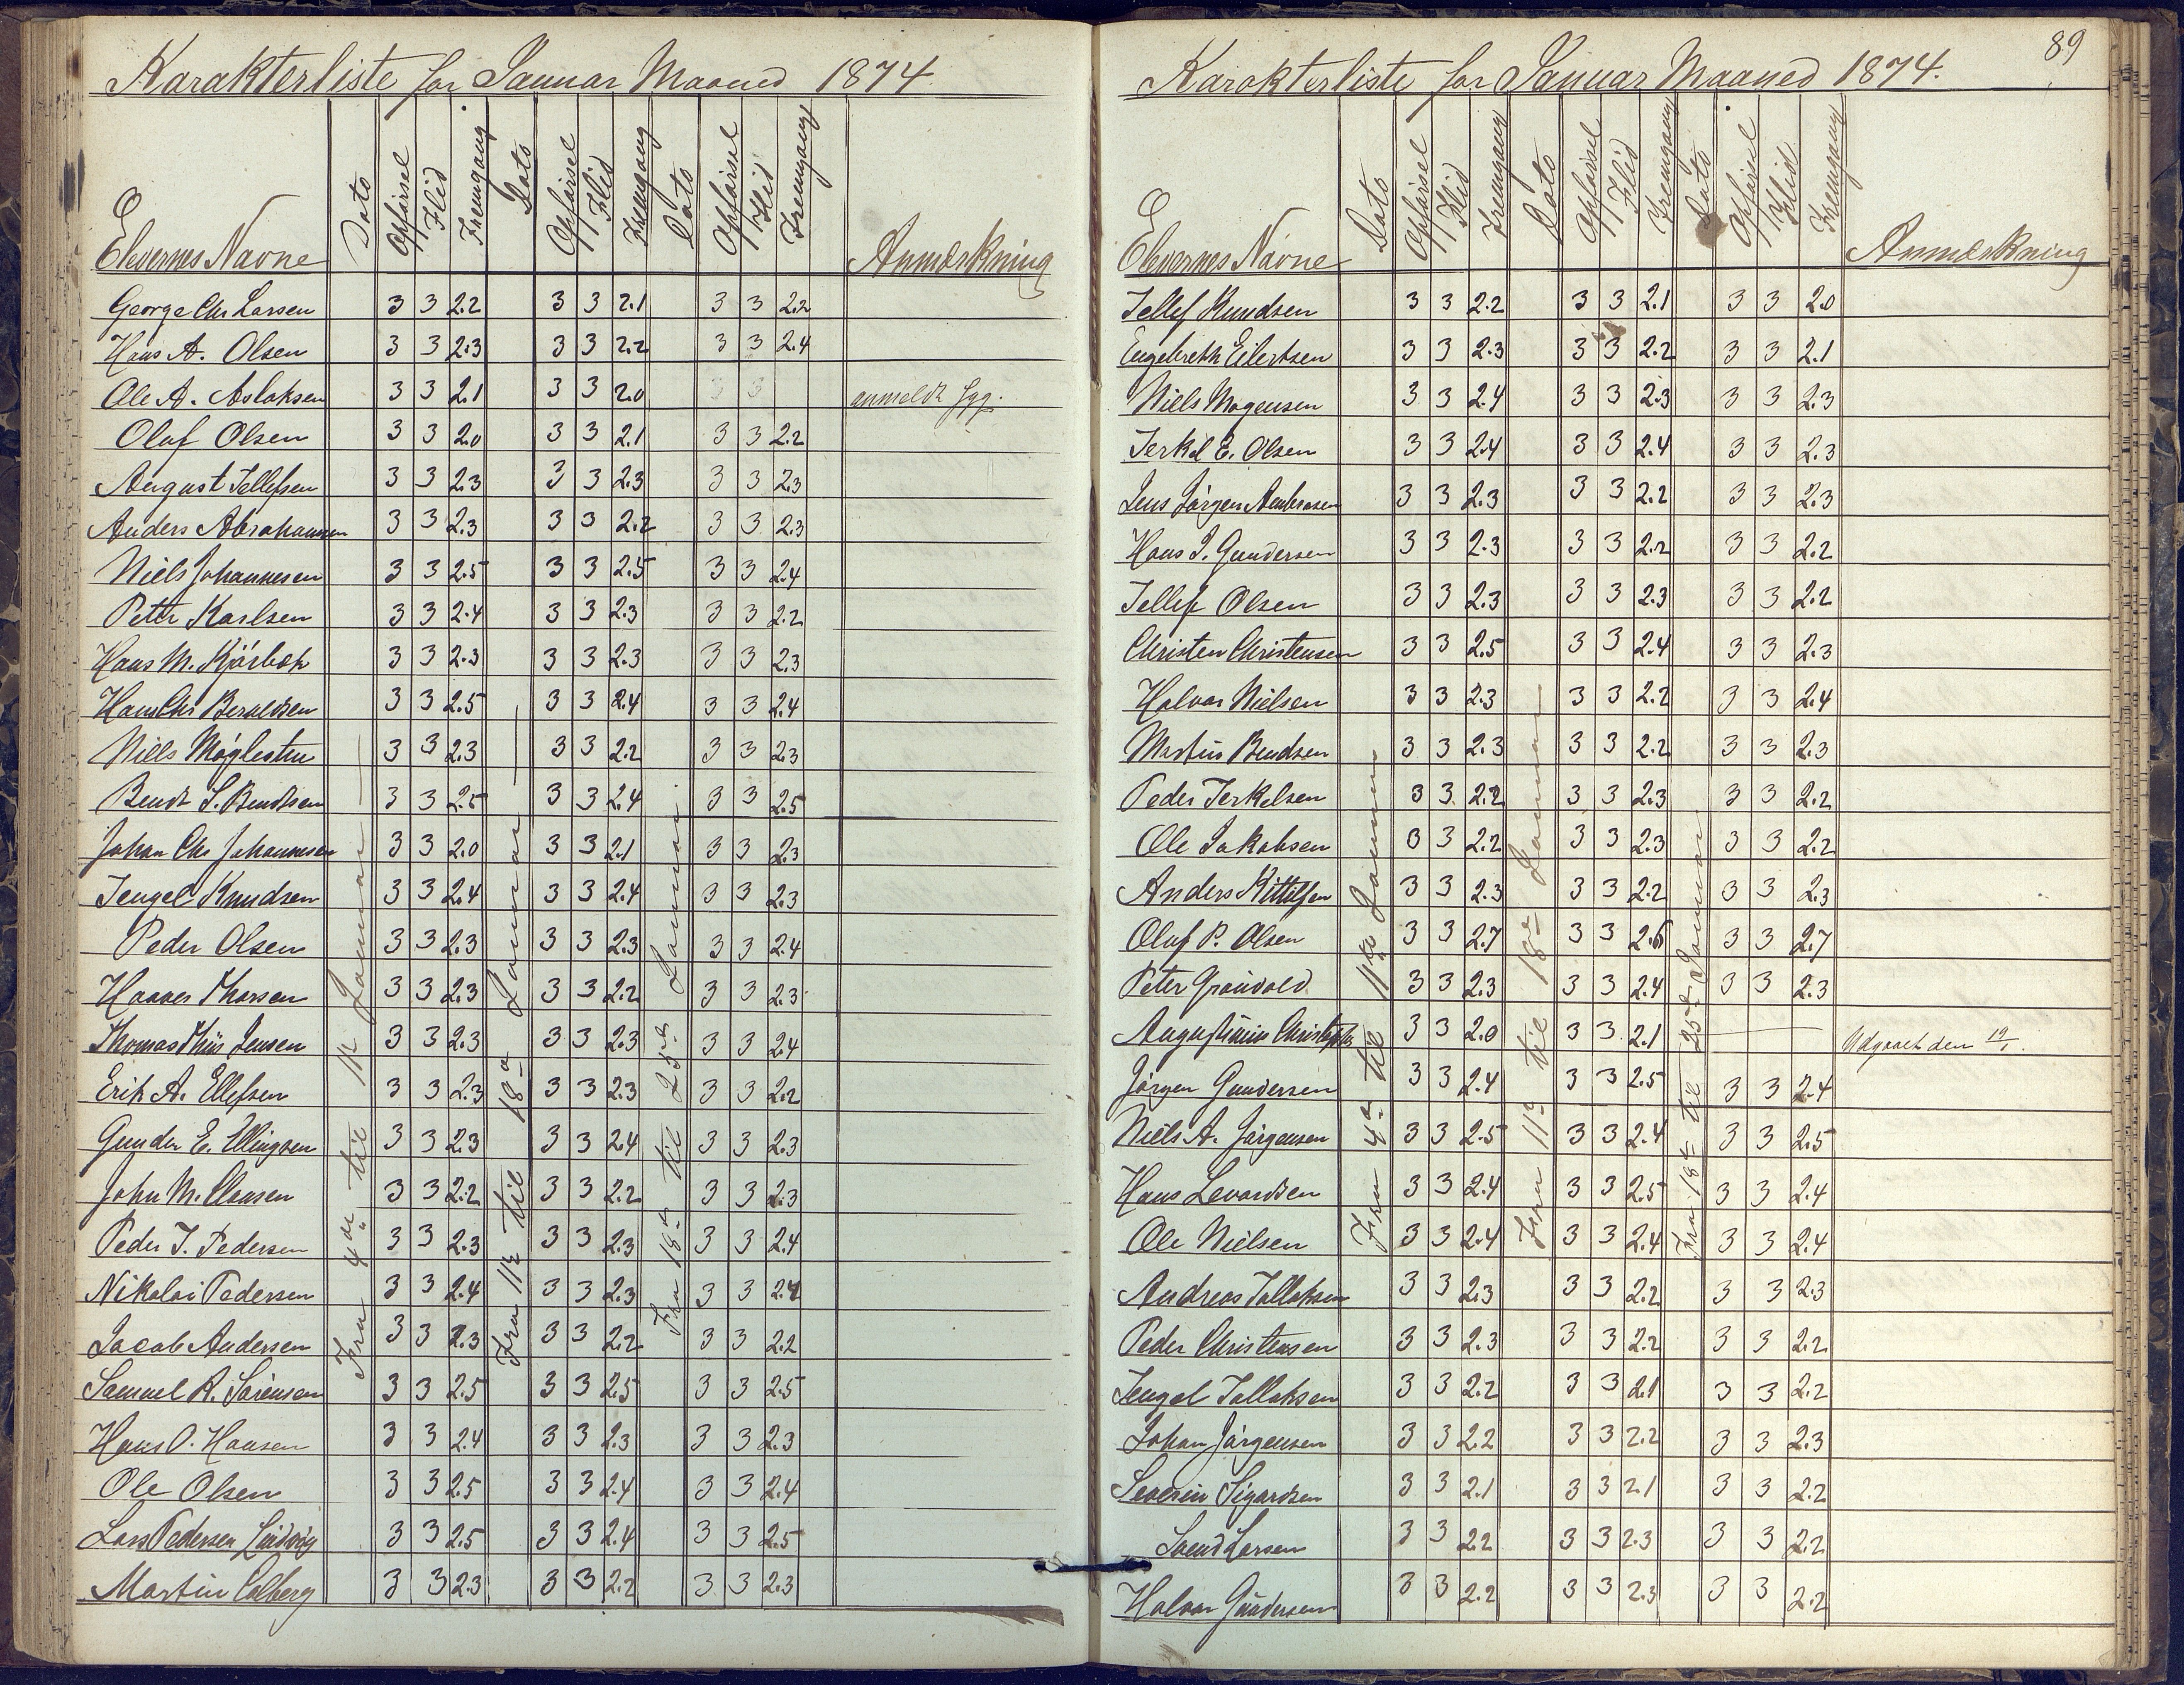 Karakterliste for Januar Maaned 1874
Elevernes Navne Dato Opførsel Flid Fremgang Dato Opførsel Flid Fremgang Dato Opførsel Flid Fremgang Anmærkning
Fra 4de til 11te Januar
Fra 11te til 18de Januar
Fra 18de til 25de Januar
George Chr Larsen 3 3 2.2 3 3 2.1 3 3 2.2
Hans A. Olsen 3 3 2.3 3 3 2.2 3 3 2.4
Ole A. Aslaksen 3 3 2.1 3 3 2.0 3 3 anmeldt syg.
Oluf Olsen 3 3 2.0 3 3 2.1 3 3 2.2
August Tellefsen 3 3 2.3 3 3 2.3 3 3 2.3
Anders Abrahamsen 3 3 2.3 3 3 2.2 3 3 2.3
Niels Johannesen 3 3 2.5 3 3 2.5 3 3 2.4
Peter Karlsen 3 3 2.4 3 3 2.3 3 3 2.2
Hans M. 3 3 2.3 3 3 2.3 3 3 2.3
Hans Chr Beraldsen 3 3 2.5 3 3 2.4 3 3 2.4
Niels Møglestue 3 3 2.3 3 3 2.2 3 3 2.3
Bendt S. Bendtsen 3 3 2.5 3 3 2.4 3 3 2.5
Johan Chr Johannesen 3 3 2.0 3 3 2.1 3 3 2.3
Tengel Knudsen 3 3 2.4 3 3 2.4 3 3 2.3
Peder Olsen 3 3 2.3 3 3 2.3 3 3 2.4
Haaver Thorsen 3 3 2.3 3 3 2.2 3 3 2.3
Thomas Thiis Jensen 3 3 2.3 3 3 2.3 3 3 2.4
Erik A. Ellefsen 3 3 2.3 3 3 2.3 3 3 2.2
Gunder E. Ellingsen 3 3 2.3 3 3 2.4 3 3 2.3
John M. Clausen 3 3 2.2 3 3 2.2 3 3 2.3
Peder T. Pedersen 3 3 2.3 3 3 2.3 3 3 2.4
Nikolai Pedersen 3 3 2.4 3 3 2.3 3 3 2.4
Jacob Andersen 3 3 2.3 3 3 2.2 3 3 2.2
Samuel R. Sørensen 3 3 2.5 3 3 2.5 3 3 2.5
Hans O. Hansen 3 3 2.4 3 3 2.3 3 3 2.3
Ole Olsen 3 3 2.5 3 3 2.4 3 3 2.4
Lars Pedersen Lindvig 3 3 2.5 3 3 2.4 3 3 2.5
Martin Colberg 3 3 2.3 3 3 2.2 3 3 2.3
89
Karakterliste for Januar Maaned 1874.
Elevernes Navne Dato Opførsel Flid Fremgang Dato Opførsel Flid Fremgang Dato Opførsel Flid Fremgang Anmærkning
Fra 4de til 11te Januar
Fra 11te til 18de Januar
Fra 18de til 25de Januar
Tellef Knudsen 3 3 2.2 3 3 2.1 3 3 2.0
Engebreth Eilertsen 3 3 2.3 3 3 2.2 3 3 2.1
Niels Mogensen 3 3 2.4 3 3 2.3 3 3 2.3
Terkel E. Olsen 3 3 2.4 3 3 2.4 3 3 2.3
Jens Jørgen Ambrosen 3 3 2.3 3 3 2.2 3 3 2.3
Hans J. Gundersen 3 3 2.3 3 3 2.2 3 3 2.2
Tellef Olsen 3 3 2.3 3 3 2.3 3 3 2.2
Christen Christensen 3 3 2.5 3 3 2.4 3 3 2.3
Halvor Nielsen 3 3 2.3 3 3 2.2 3 3 2.4
Martin Bendsen 3 3 2.3 3 3 2.2 3 3 2.3
Peder Terkelsen 3 3 2.2 3 3 2.3 3 3 2.2
Ole Jakobsen 3 3 2.2 3 3 2.3 3 3 2.2
Anders Kittilsen 3 3 2.3 3 3 2.2 3 3 2.3
Oluf P. Olsen 3 3 2.7 3 3 2.6 3 3 2.7
Peter Grønvold 3 3 2.3 3 3 2.4 3 3 2.3
Augustinius 3 3 2.0 3 3 2.1 Udgaaet den 19/1.
Jørgen Gundersen 3 3 2.4 3 3 2.5 3 3 2.4
Niels A. Jørgensen 3 3 2.5 3 3 2.4 3 3 2.5
Hans Levordsen 3 3 2.4 3 3 2.5 3 3 2.4
Ole Nielsen 3 3 2.4 3 3 2.4 3 3 2.4
Andreas Tallaksen 3 3 2.3 3 3 2.2 3 3 2.3
Peder Christensen 3 3 2.3 3 3 2.2 3 3 2.2
Tengel Tallaksen 3 3 2.2 3 3 2.1 3 3 2.2
Johan Jørgensen 3 3 2.2 3 3 2.2 3 3 2.3
Severin Sigardsen 3 3 2.1 3 3 2.1 3 3 2.2
Svend Larsen 3 3 2.2 3 3 2.3 3 3 2.2
Halvor Gundersen 3 3 2.2 3 3 2.3 3 3 2.2